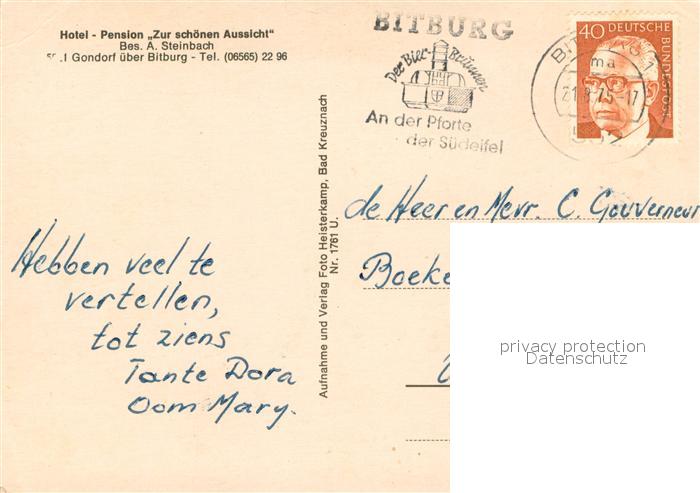 Hotel - Pension „Zur schönen Aussicht"
Bes. A. Steinbach
Gondorf über Bitburg - Tel. (06565) 22 96
BITBURG
Der Bier-Brunnen
An der Pforte
der Südeifel
40 DEUTSCHE BUNDESPOST
21.8.75-17
ma
Aufnahme und Verlag Foto Heisterkamp, Bad Kreuznach
Nr. 1761 U.
de Heer en Mevr. C. Gouverneur
Boeke
Hebben veel te
vertellen,
tot ziens
Tante Dora
Oom Mary.
privacy protection
Datenschutz